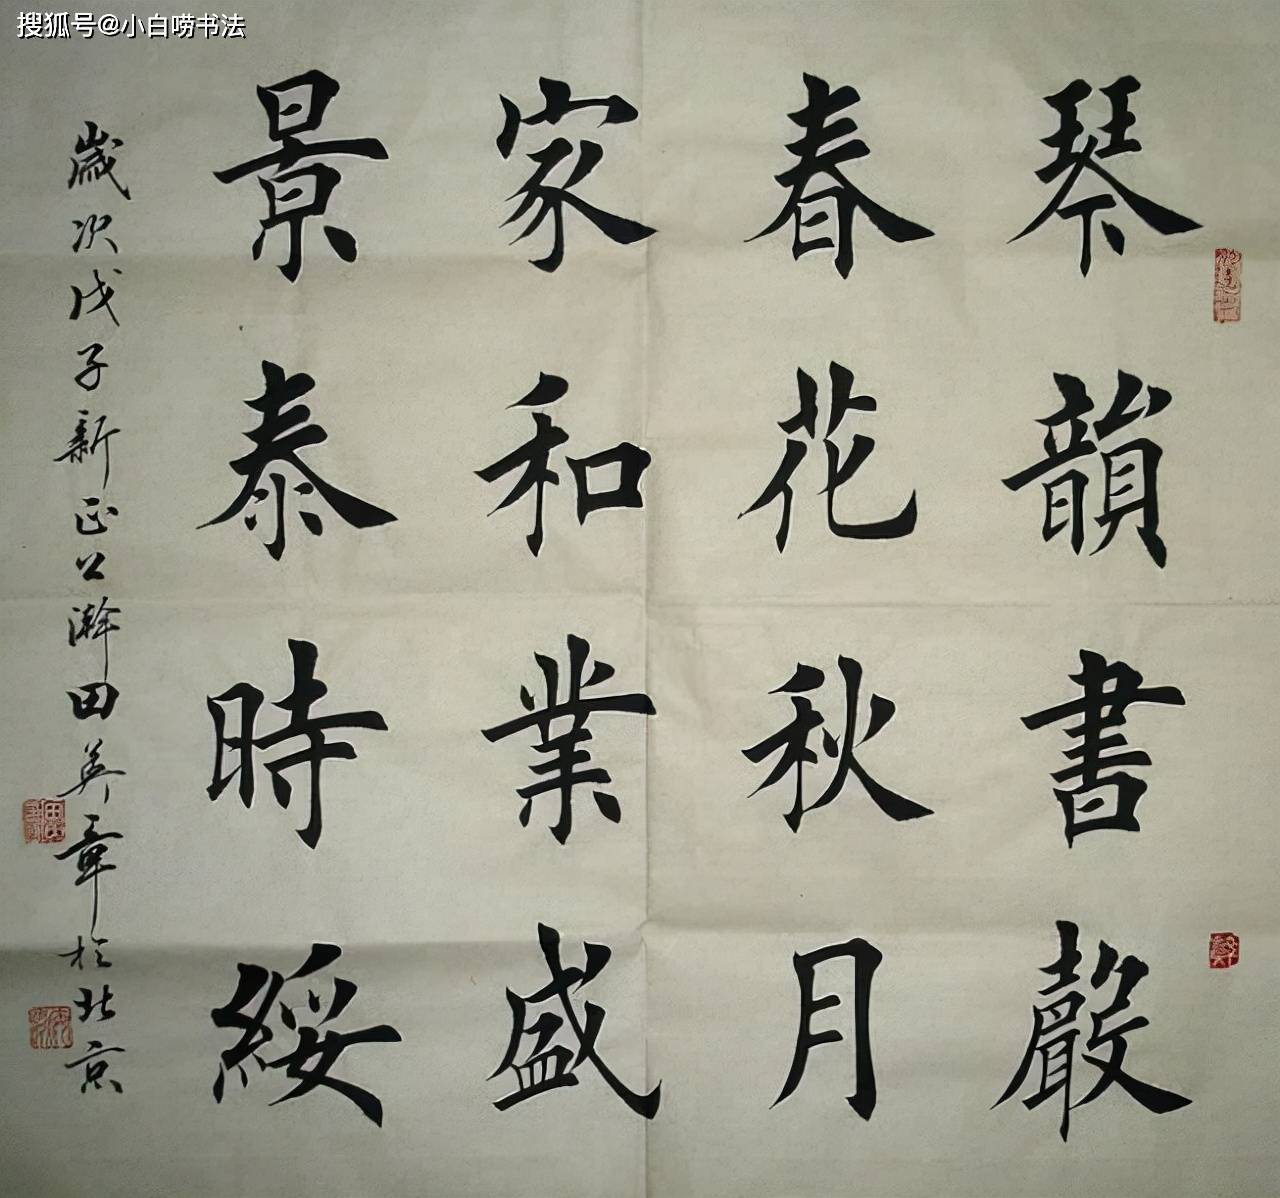 搜狐号@小白唠书法
琴韻書聲
春花秋月
家和業盛
景泰時綏
歲次戊子新正公瀚田英章於北京